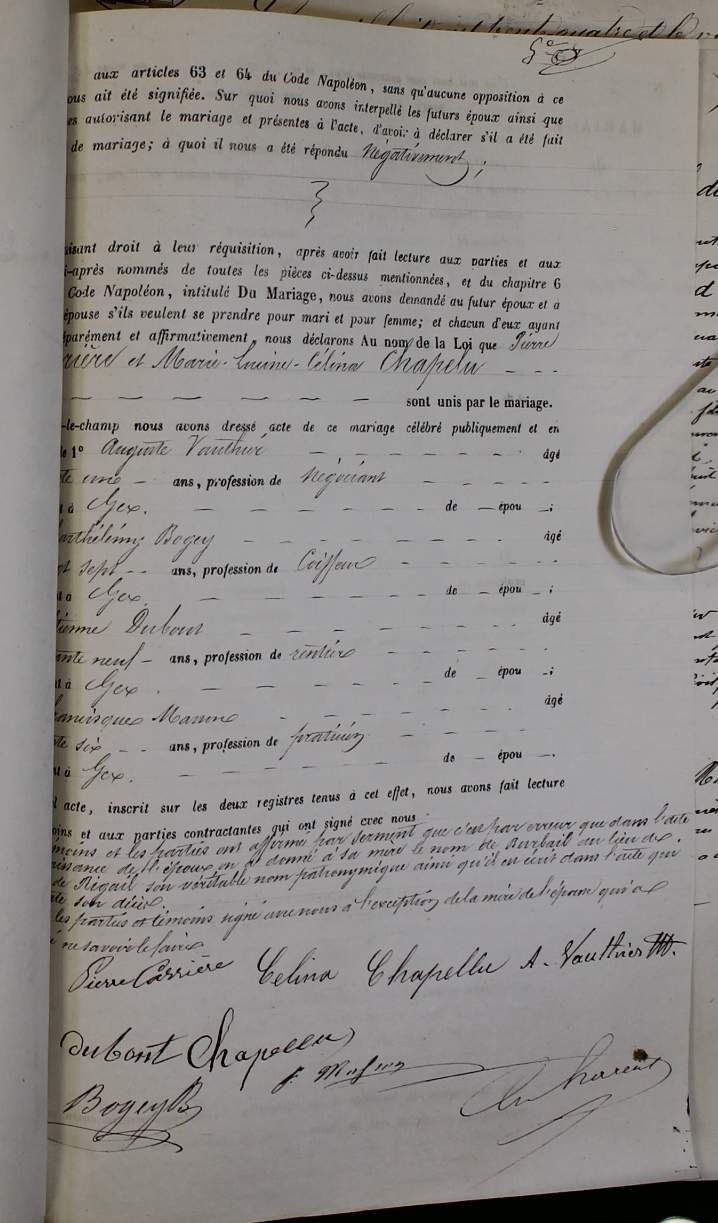 aux articles 63 et 64 du Code Napoléon, sans qu'aucune opposition à ce
ous ait été signifiée. Sur quoi nous avons interpellé les futurs époux ainsi que
es autorisant le mariage et présentes à l'acte, d'avoir à déclarer s'il a été fait
de mariage; à quoi il nous a été répondu Négativement;
isant droit à leur réquisition, après avoir fait lecture aux parties et aux
i-après nommés de toutes les pièces ci-dessus mentionnées, et du chapitre 6
Code Napoléon, intitulé Du Mariage, nous avons demandé au futur époux et à
épouse s'ils veulent se prendre pour mari et pour femme; et chacun d'eux ayant
parément et affirmativement, nous déclarons Au nom de la Loi que Pierre
rière et Marie-Louise-Célina Chapelu
sont unis par le mariage.
-le-champ nous avons dressé acte de ce mariage célébré publiquement et en
de 1° Auguste Vauthier âgé
te une - ans, profession de Négociant
t à Gex. de — épou —;
arthélémy Bogey âgé
t sept -- ans, profession de Coiffeur
t à Gex. de - épou -;
ienne Dubout âgé
ante neuf - ans, profession de rentier
t à Gex. de - épou -;
ancisque Masson âgé
te six - - ans, profession de praticien
t à Gex. de - épou -.
l acte, inscrit sur les deux registres tenus à cet effet, nous avons fait lecture
oins et aux parties contractantes qui ont signé avec nous
moins et les parties ont affirmé par serment que c'est par erreur que dans l'acte
aissance de l'époux on a donné à sa mère le nom de Burbail au lieu de
de Rigail son véritable nom patronymique ainsi qu'il est écrit dans l'acte qui
te son décès.
les parties et témoins signé avec nous à l'exception de la mère de l'épouse qui a
é ne savoir le faire
Pierre Carrière Celina Chapellu A. Vauthier
dubout Chapellu
Bogey B